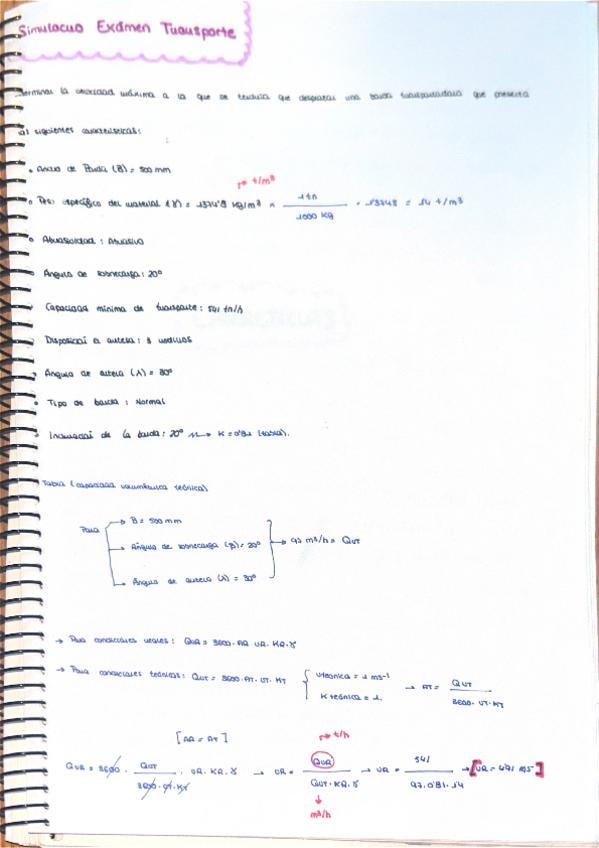 Simulacro Exámen Transporte
la velocidad máxima a la que se tendría que desplazar una banda transportadora que presenta
siguientes características:
• Ancho de Banda (B) = 500 mm
t/m³
• específico del material (γ) = 1374'8 kg/m³ × 1 tn / 1000 kg = 1'3748 = 1'4 t/m³
• Abrasividad : Abrasivo
• Ángulo de sobrecarga : 20°
• Capacidad mínima de transporte : 541 tn/h
• en artesa : 3 rodillos
• Ángulo de artesa (λ) = 30°
• Tipo de banda : Normal
• de la banda : 20° → K = 0'81 (tabla).
Tabla (capacidad volumétrica teórica)
Para → B = 500 mm
→ Ángulo de sobrecarga (β) = 20° → 97 m³/h = QVT
→ Ángulo de artesa (λ) = 30°
→ Para condiciones reales : QVR = 3600 · AR · VR · KR · γ
→ Para condiciones teóricas : QVT = 3600 · AT · VT · KT { Vteórica = 1 ms⁻¹ → AT = QVT / 3600 · VT · KT
K teórica = 1.
[AR = AT]
→ t/h
QVR = 3600 · QVT / 3600 · VT · KT · VR · KR · γ → VR = QVR / QVT · KR · γ → VR = 541 / 97 · 0'81 · 1'4 → [VR = 4'91 m/s]
m³/h